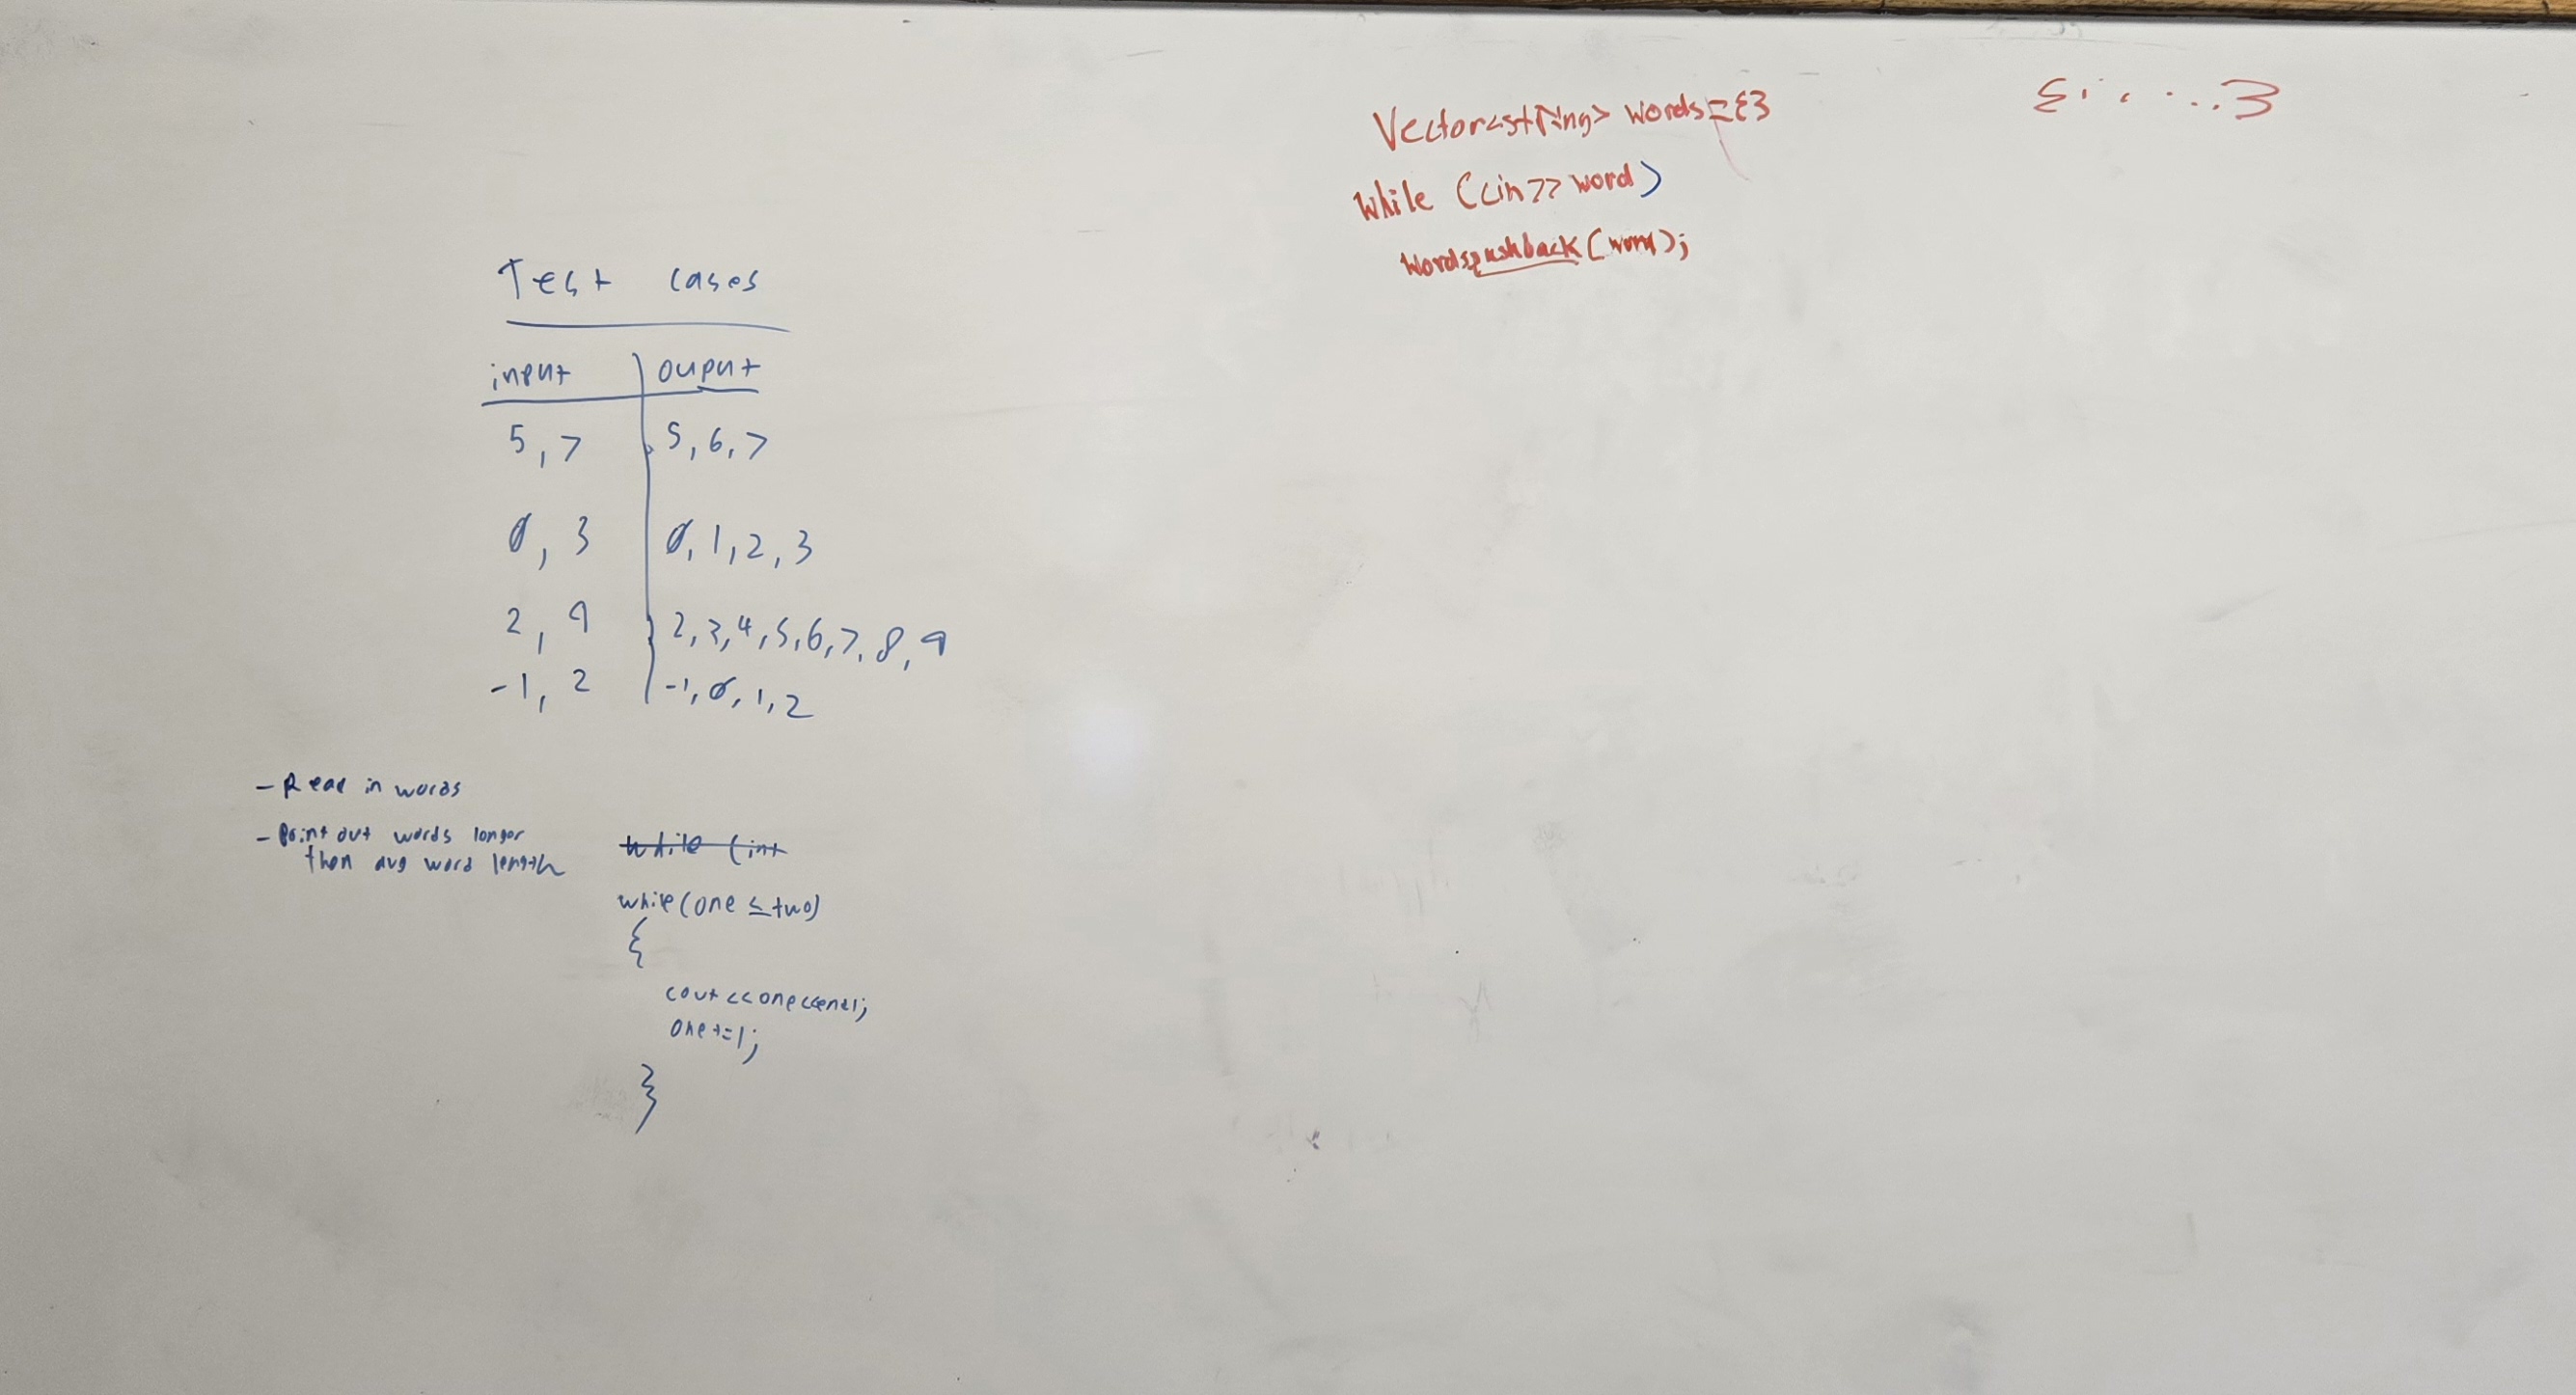 Vector<string> words={}
{ , , . . . }
while (cin>> word)
words.pushback(word);
Test cases
input | ouput
5, 7 | 5, 6, 7
0, 3 | 0, 1, 2, 3
2, 9 | 2, 3, 4, 5, 6, 7, 8, 9
-1, 2 | -1, 0, 1, 2
- Read in words
- Print out words longer
then avg word length
while (int
while(one ≤ two)
{
cout<<one<<endl;
one+=1;
}